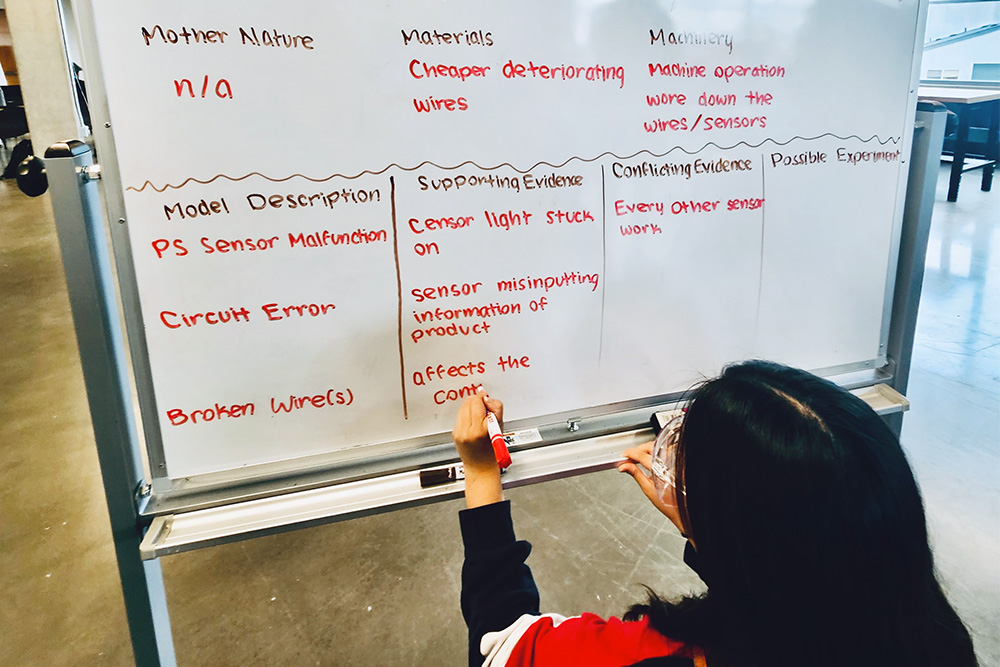 Mother Nature
n/a
Materials
Cheaper deteriorating
wires
Machinery
Machine operation
wore down the
wires/sensors
Model Description
Supporting Evidence
Conflicting Evidence
Possible Experiment
PS Sensor Malfunction
Censor light stuck
on
Every other sensor
work
Circuit Error
sensor misinputting
information of
product
Broken Wire(s)
affects the
cont